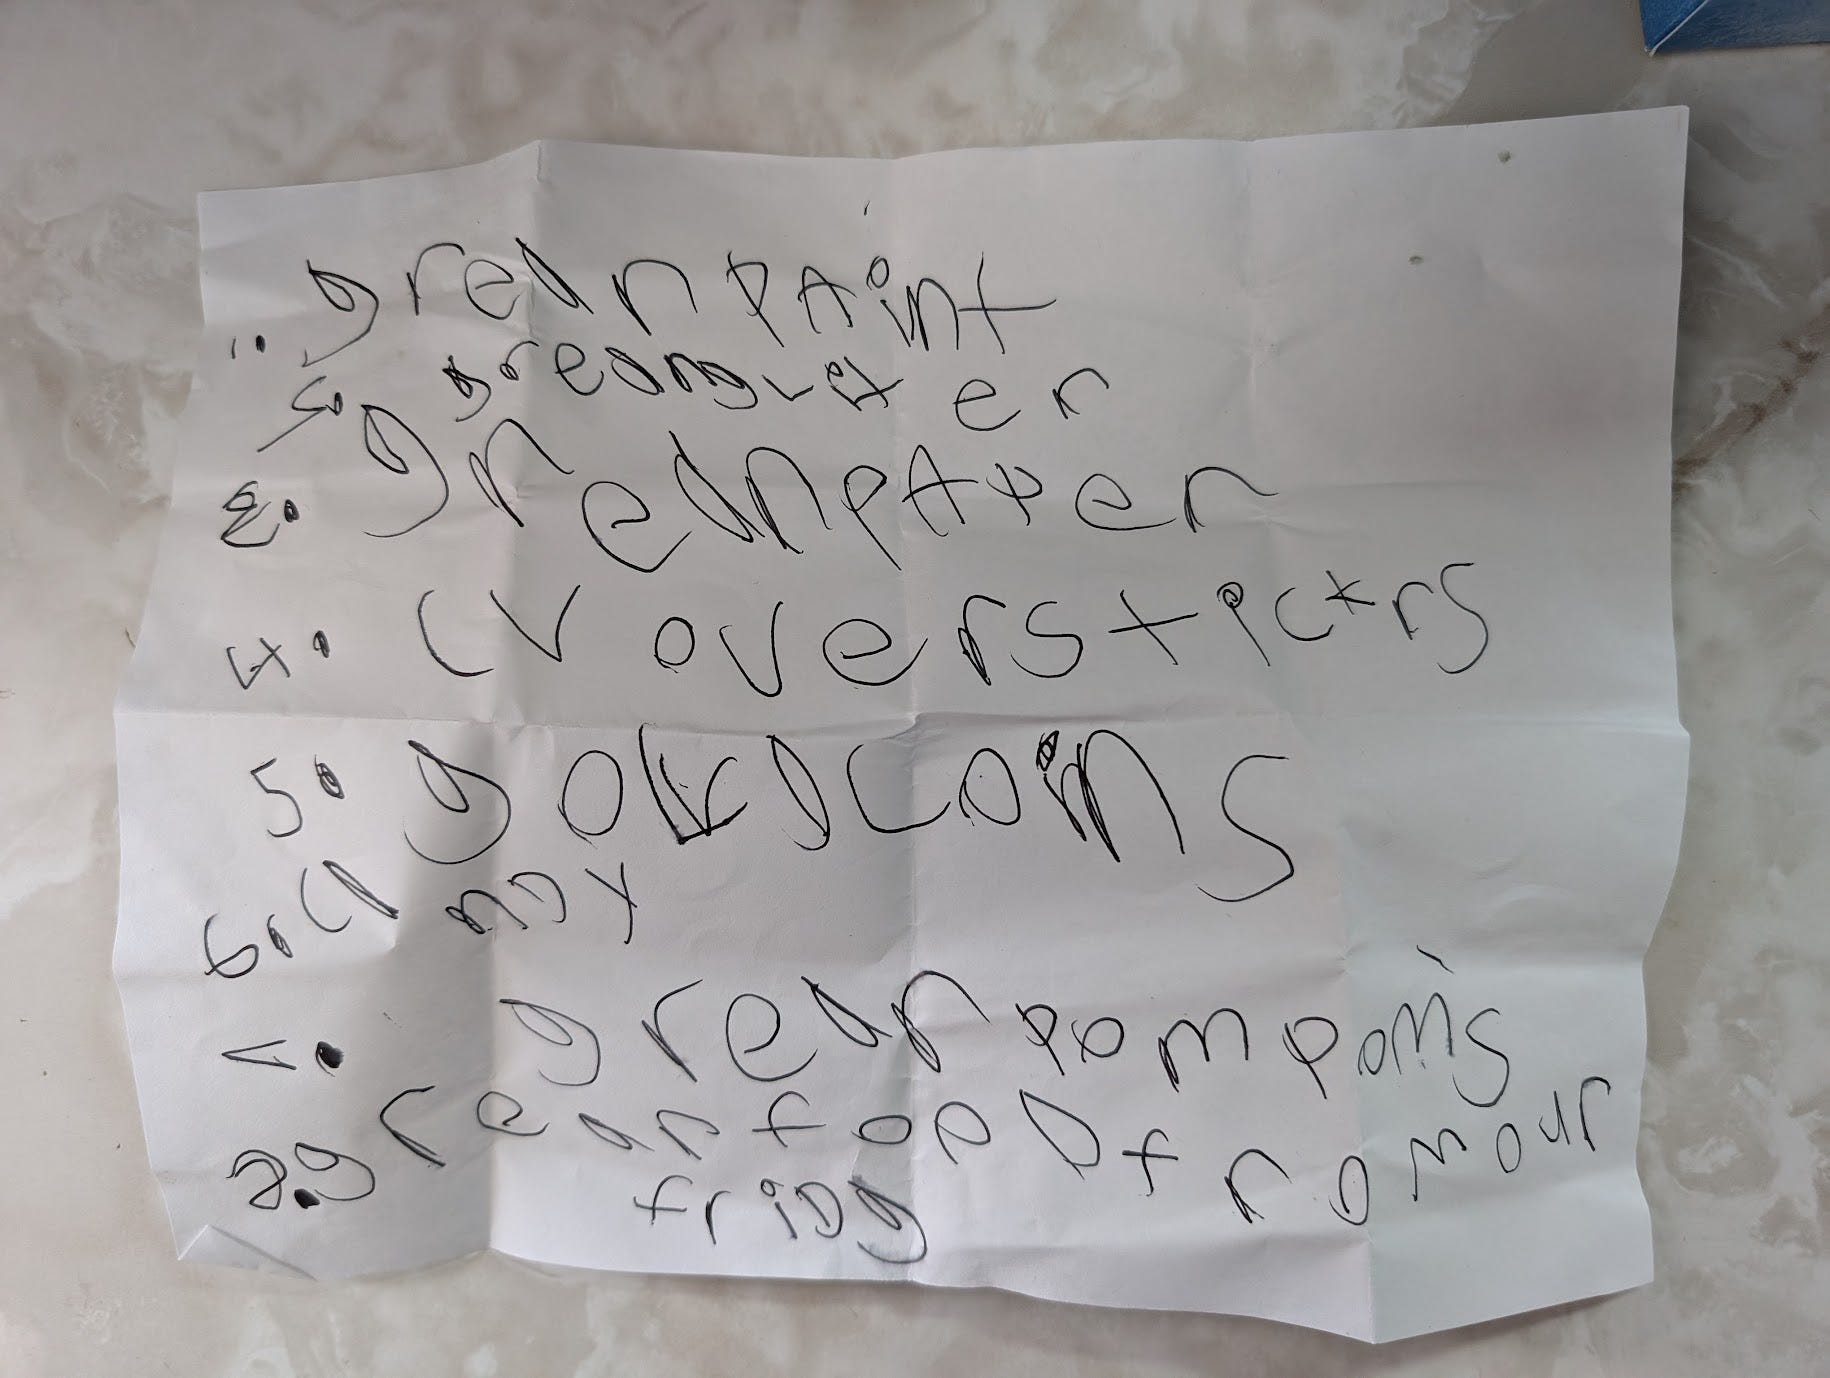 1. greanpaint
2. greangliter
3. greanpaper
4. cloverstickrs
5. goldcoins
6. candy
7. grean pompoms
8. greanfood from our
fridg